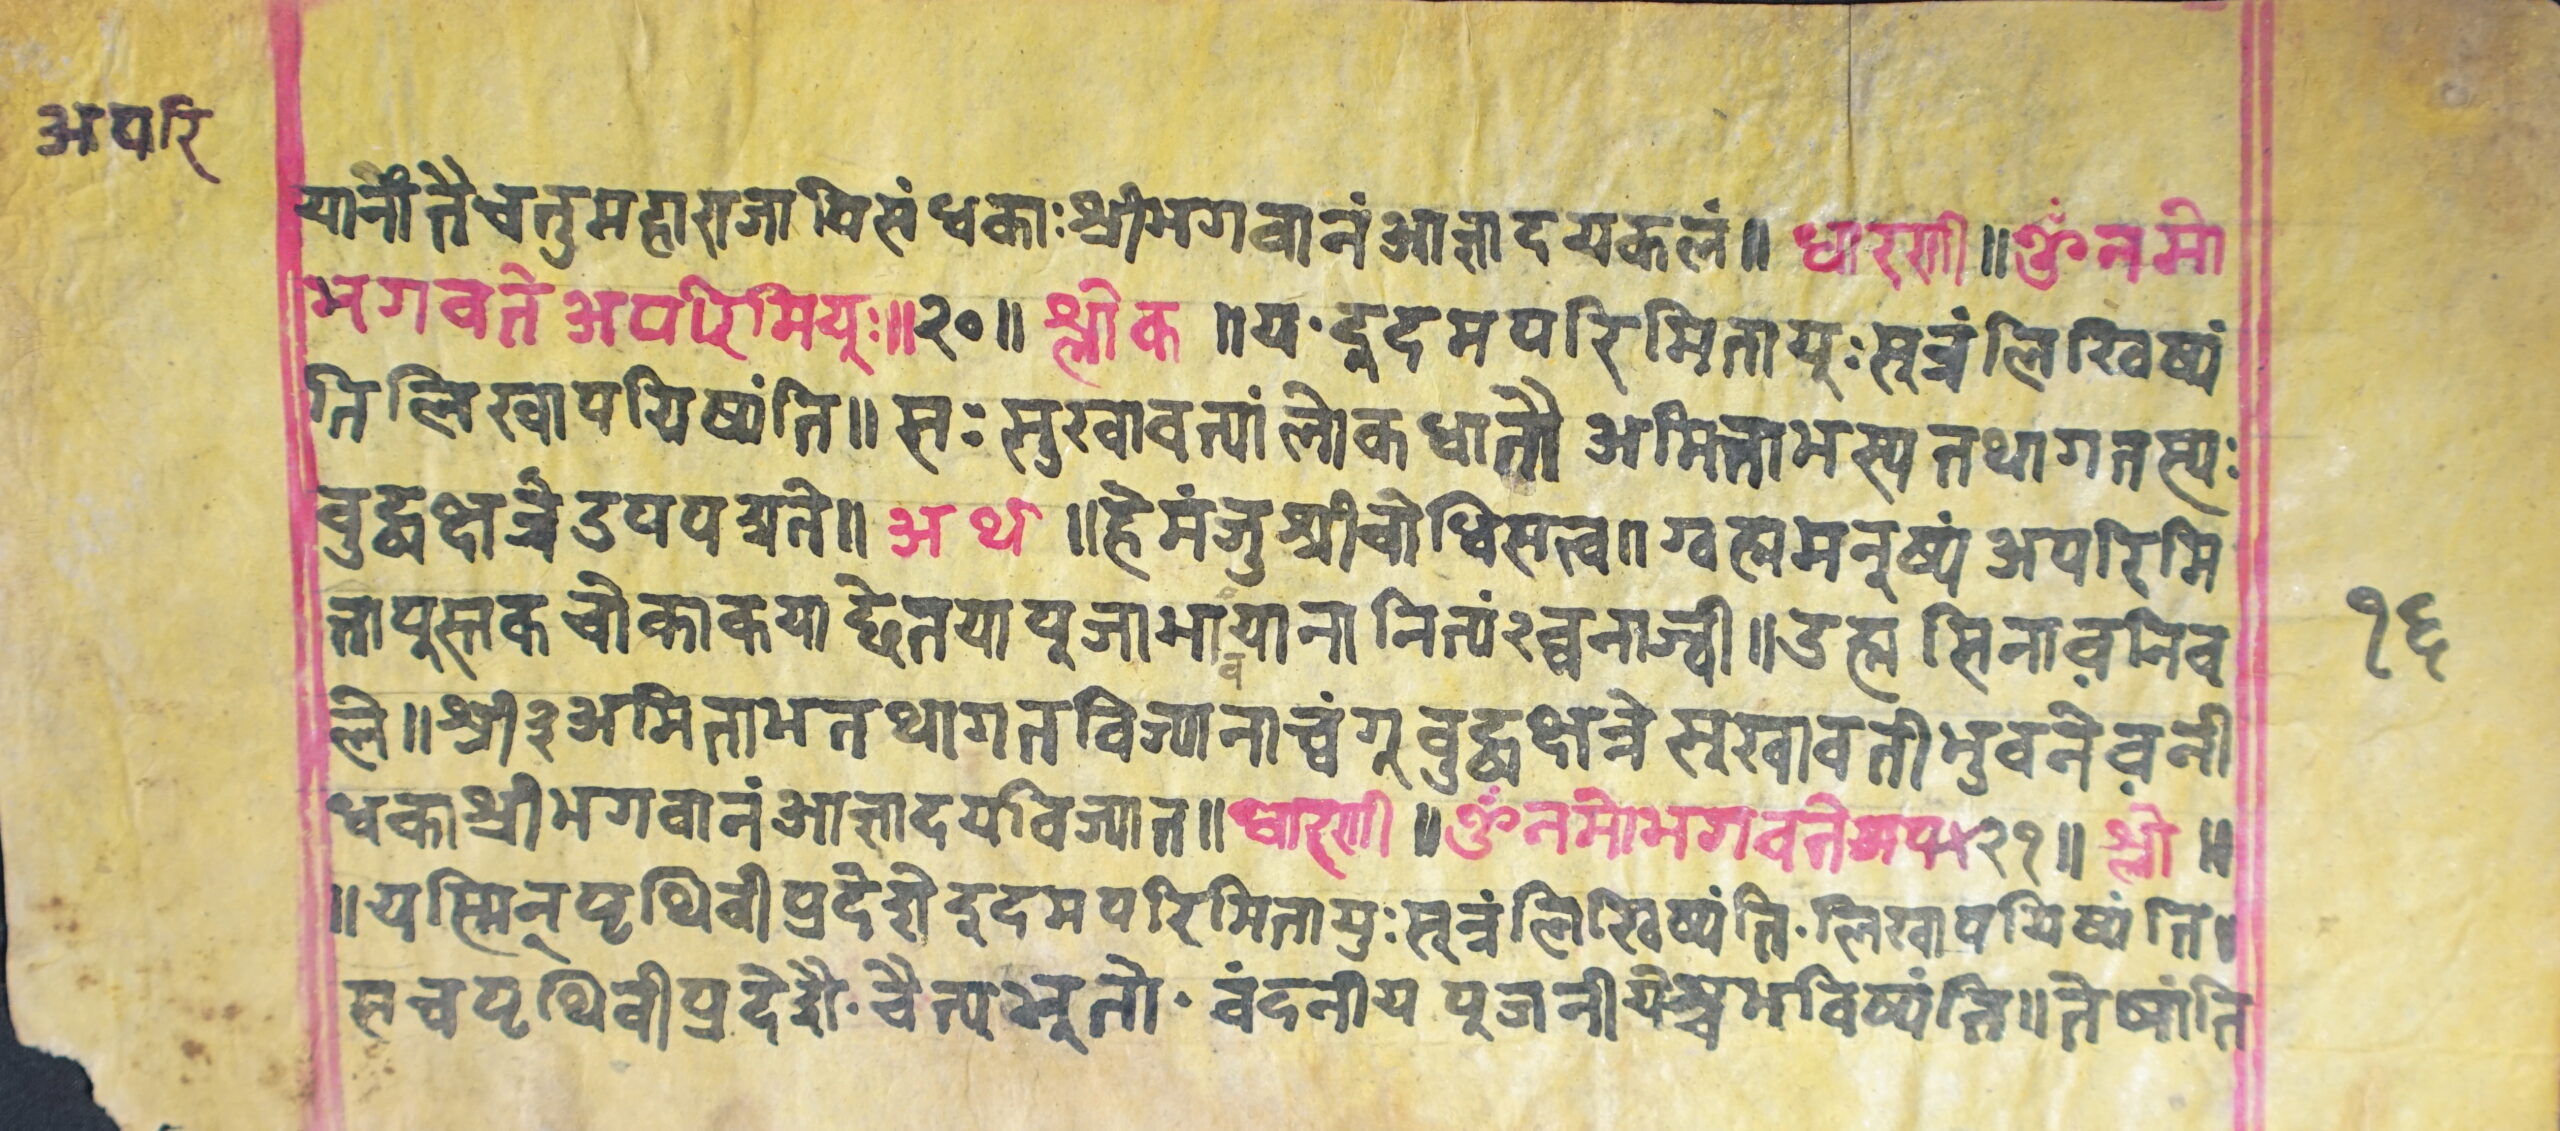 अपरि
यानीतैचतुमहाराजापिसंधकाःश्रीभगवानंआज्ञादयकलं॥ धारणी॥ॐनमो
भगवते अपरिमियुः॥२०॥ श्लोक ॥य·दुदमपरिमितायुःसूत्रंलिखिष्यं
तिलिखापयिष्यंति॥ सः सुखावत्यांलोकधातौ अमिताभस्य तथागतस्यः
बुद्धक्षत्रैउपपद्यते॥ अर्थ ॥हेमंजुश्रीबोधिसत्व॥ ग्वह्ममनुष्यं अपरिमि
तापुस्तक चोकाकयाद्धेतयापुजाभावयाना नित्यं२
ले॥श्री३अमिताभतथागतविज्यानाच्वंगुबुद्धक्षत्रेसुखावतीभुवनेवनी
धकाश्रीभगवानंआज्ञादयविज्यात॥धारणी॥ॐनमोभगवतेअप×२१॥ श्लो॥
॥यस्मिन्पृथिवीप्रदेशेदुदमपरिमितायुःसूत्रंलिखिष्यंति·लिखापयिष्यंति॥
सचपृथिवीप्रदेशै·चैत्यभूतो· वंदनीयपुजनीयेश्चभविष्यंति॥तेषांति
१६